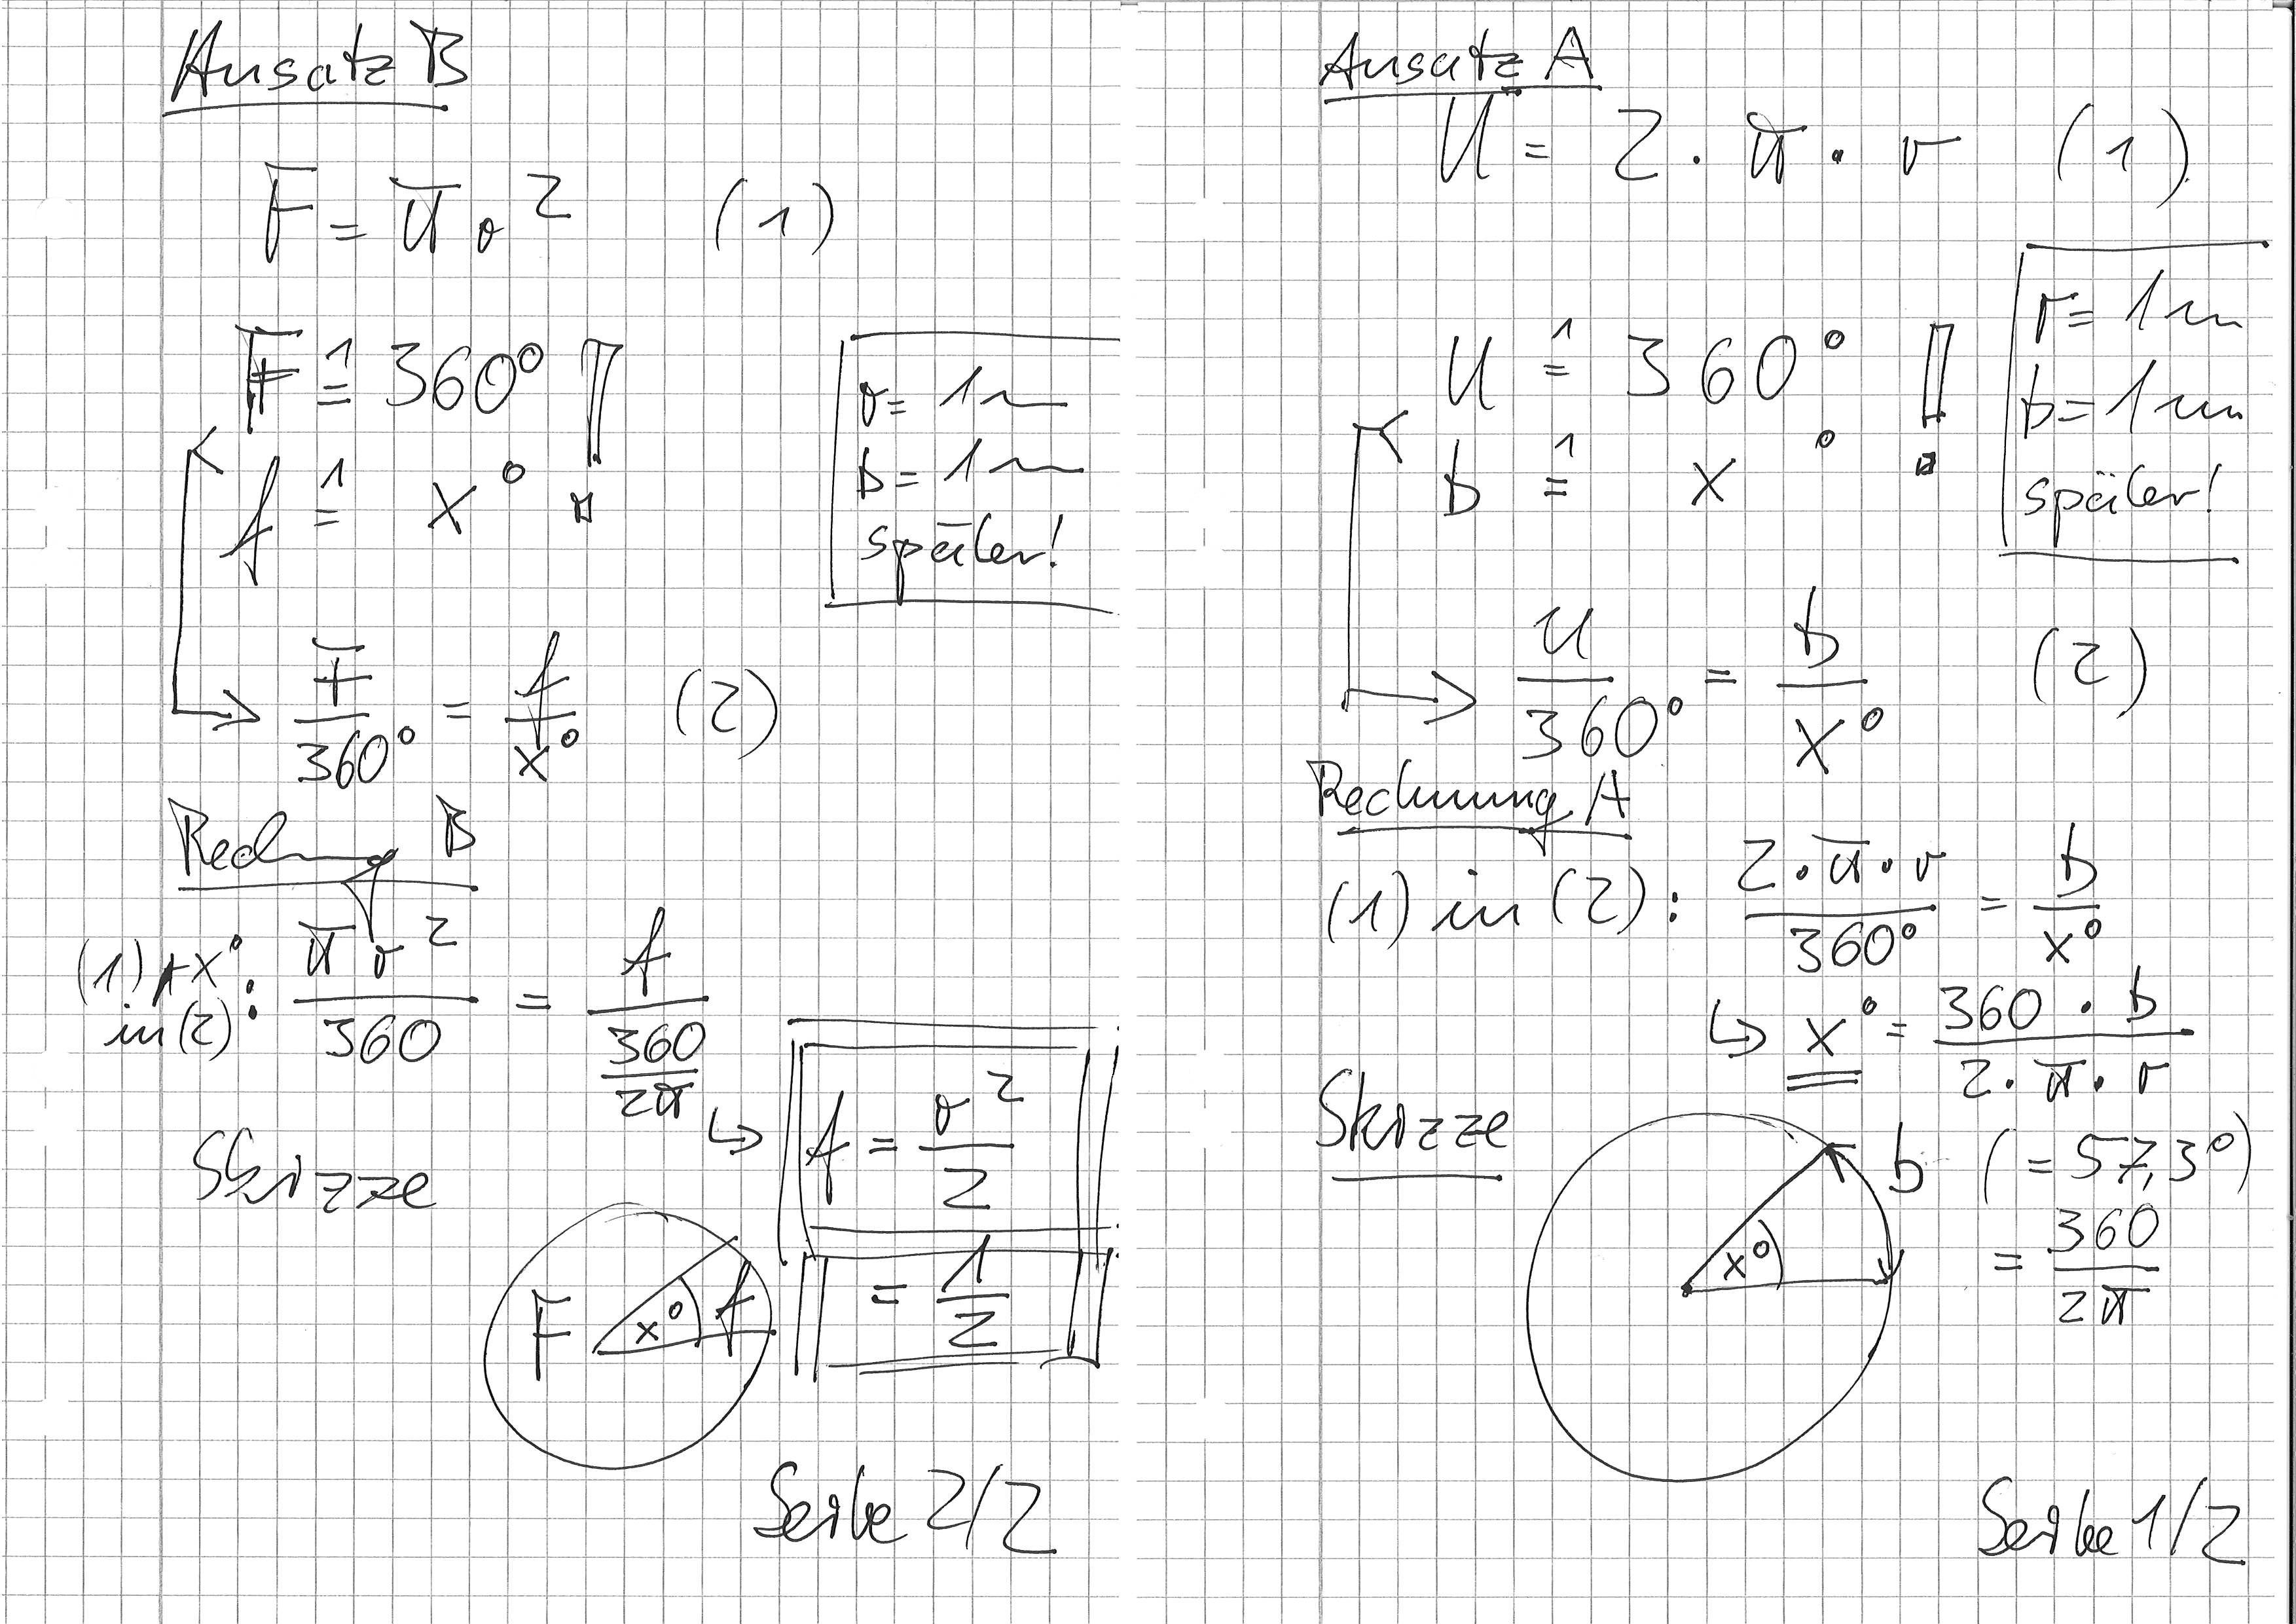 Ansatz B
F = π r² (1)
F ≙ 360° !
f ≙ x°
r = 1m
b = 1m
später!
F/360° = f/x° (2)
Rechnung B
(1) + x° in (2): π r²/360 = f/(360/2π)
↳ f = r²/2
= 1/2
Skizze
F x° f
Seite 2/2
Ansatz A
U = 2 · π · r (1)
U ≙ 360° !
b ≙ x°
r = 1m
b = 1m
später!
U/360° = b/x° (2)
Rechnung A
(1) in (2): 2·π·r/360° = b/x°
↳ x° = 360 · b/2 · π · r
Skizze
b (= 57,3°)
x° = 360/2π
Seite 1/2